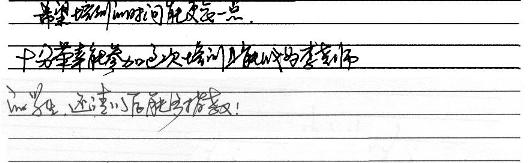 希望培训的时间能更长一点.
十分荣幸能参加这次培训且能成为李老师
的学生,还请以后能多指教!